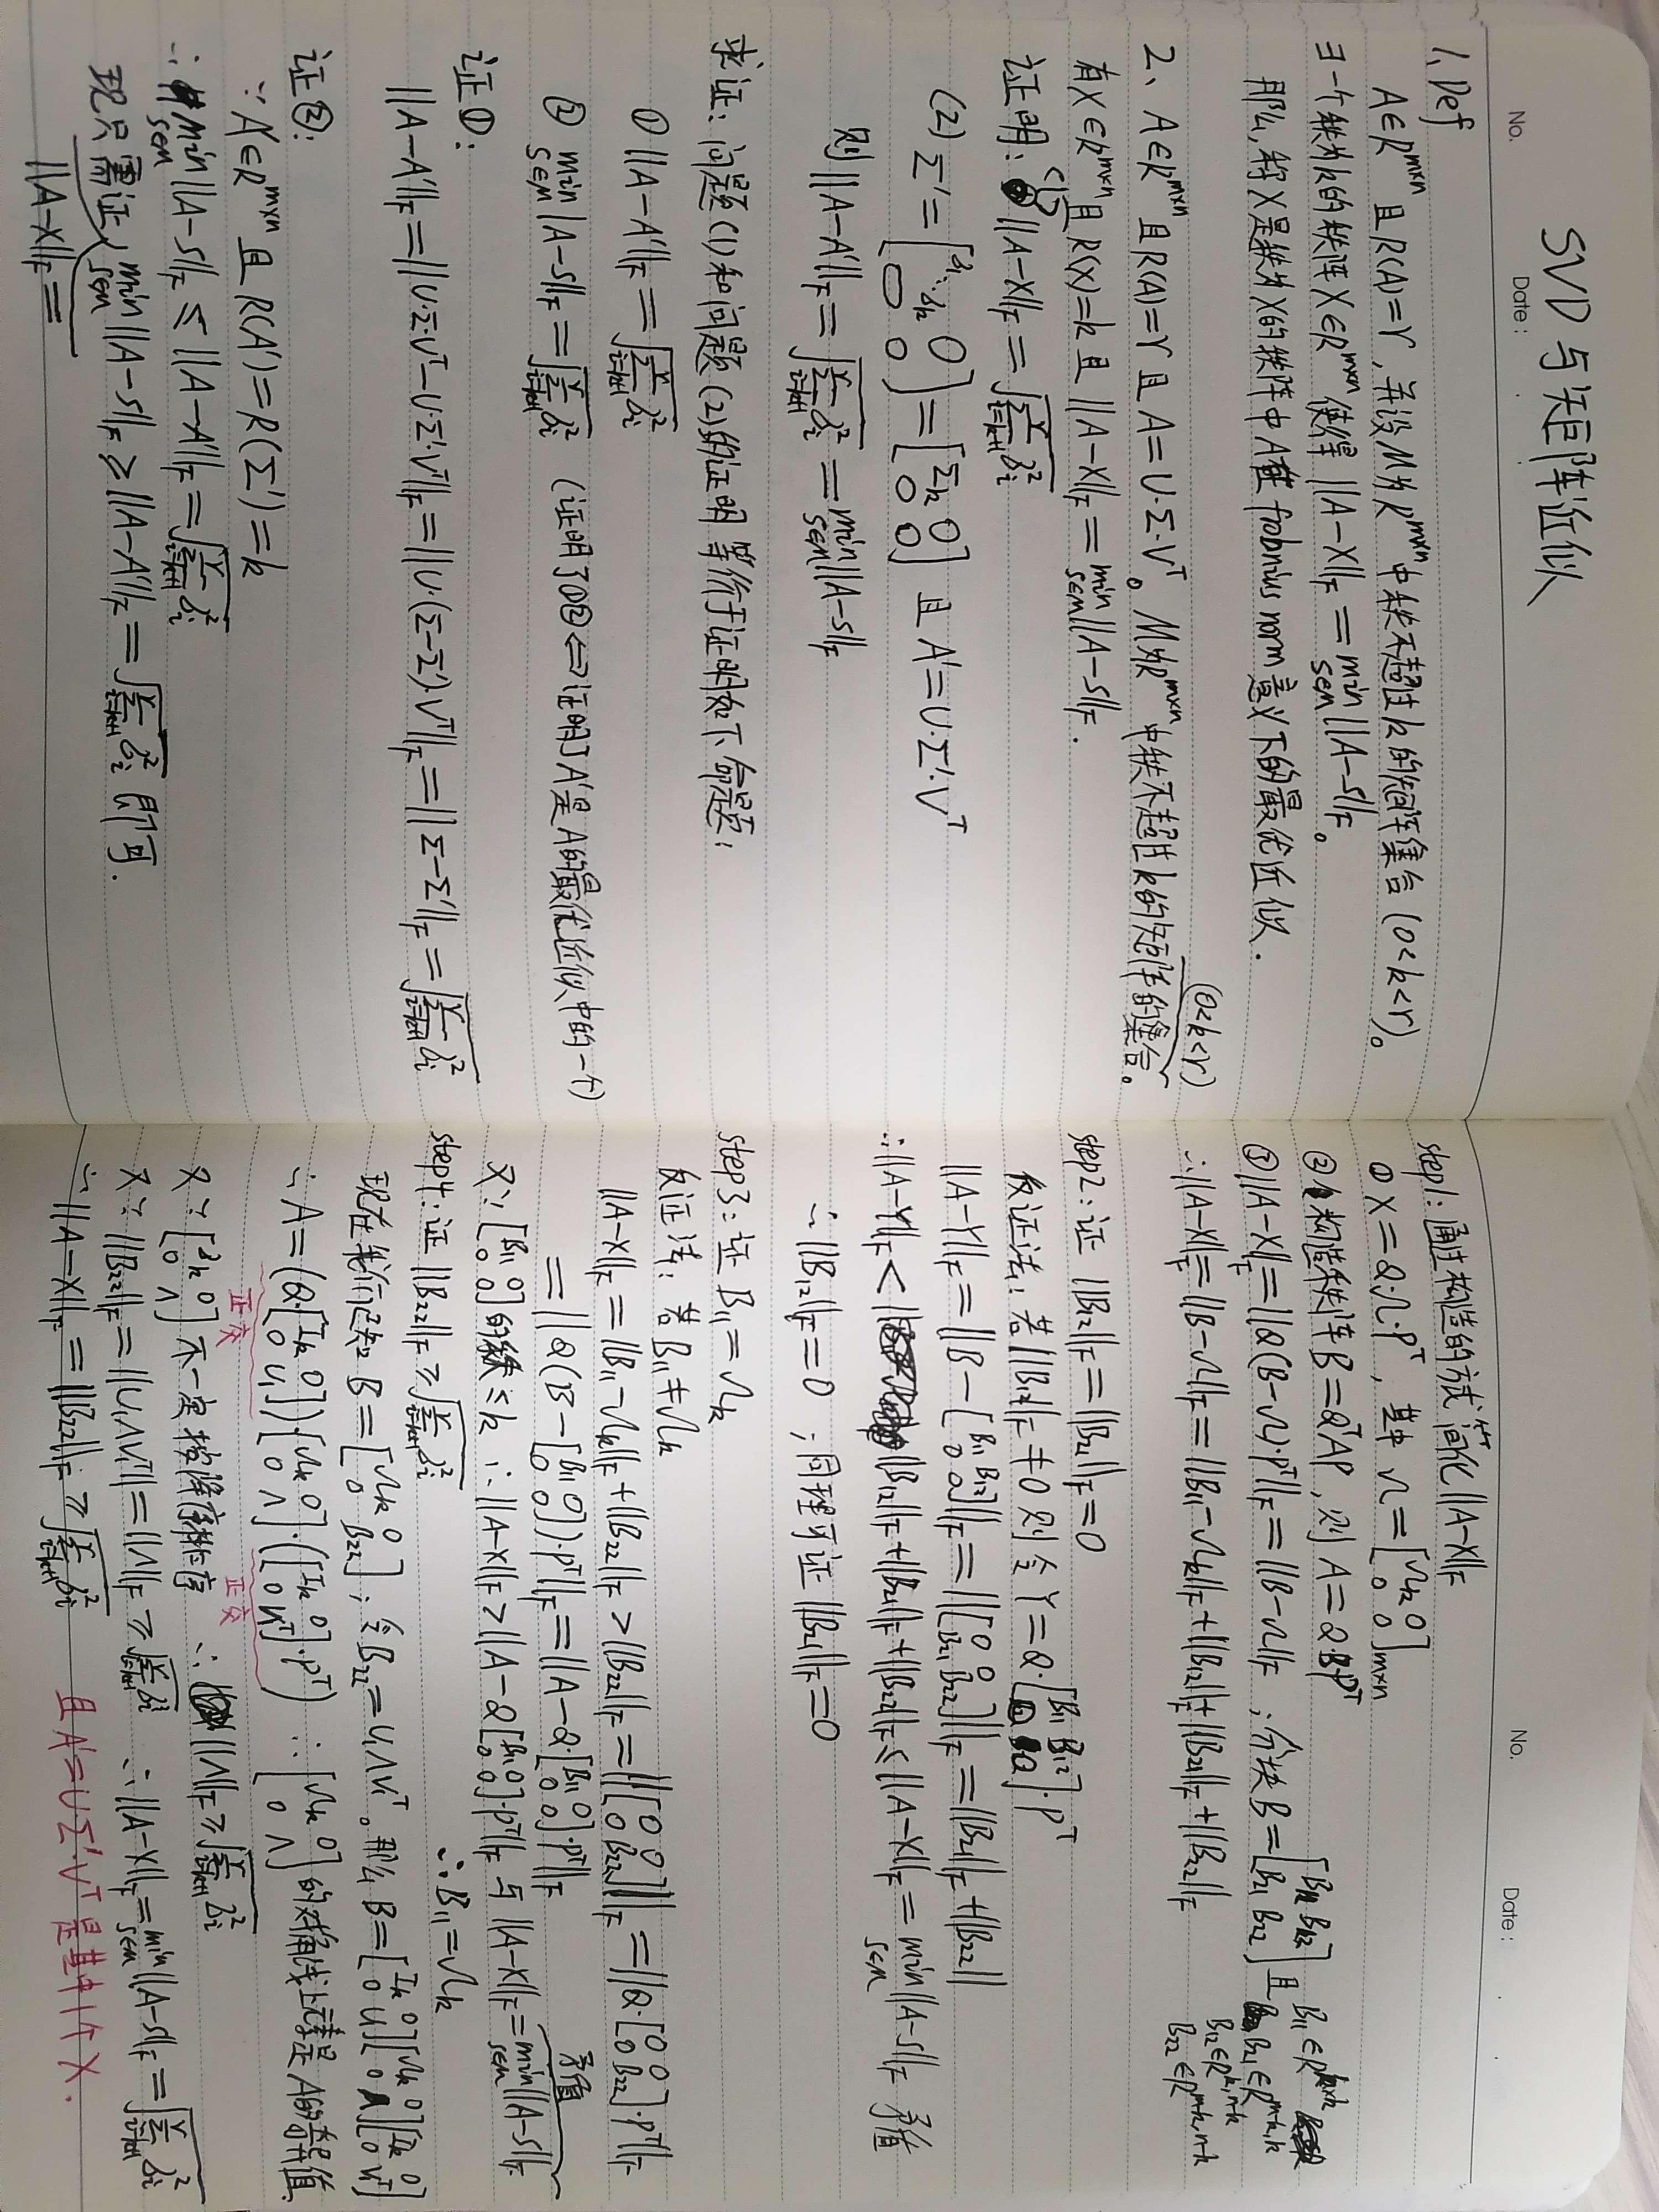 SVD 与矩阵近似
No. Date: . .
1、Def
A∈R^{m×n} 且 R(A)=r, 并设 M 为 R^{m×n} 中秩不超过 k 的矩阵集合 (0<k<r)。
∃一个秩为k的秩阵 X∈R^{m×n} 使得 ||A-X||_F = min_{S∈M} ||A-S||_F。
那么, 称 X 是秩为 X 的秩阵中 A 在 frobnius norm 意义下的最优近似.
(0<k<r)
2、A∈R^{m×n} 且 R(A)=r 且 A=U·Σ·V^T。M为R^{m×n}中秩不超过k的矩阵的集合。
有 X∈R^{m×n} 且 R(X)=k 且 ||A-X||_F = min_{S∈M} ||A-S||_F.
证明: <1> ||A-X||_F = √(Σ_{i=k+1}^{r} δ_i^2)
(2) Σ' = [δ_1 ⋱ δ_k 0; 0 0] = [Σ_k 0; 0 0] 且 A'=U·Σ'·V^T
则 ||A-A'||_F = √(Σ_{i=k+1}^{r} δ_i^2) = min_{S∈M} ||A-S||_F
求证: 问题(1)和问题(2)的证明等价于证明如下命题:
① ||A-A'||_F = √(Σ_{i=k+1}^{r} δ_i^2)
② min_{S∈M} |A-S||_F = √(Σ_{i=k+1}^{r} δ_i^2) (证明了①② ⟺ 证明了A'是A的最优近似中的一个)
证①:
||A-A'||_F = ||U·Σ·V^T - U·Σ'·V^T||_F = ||U·(Σ-Σ')·V^T||_F = ||Σ-Σ'||_F = √(Σ_{i=k+1}^{r} δ_i^2)
证②:
∵ A'∈R^{m×n} 且 R(A')=R(Σ')=k
∴ min_{S∈M} ||A-S||_F ≤ ||A-A'||_F = √(Σ_{i=k+1}^{r} δ_i^2)
现只需证 min_{S∈M} ||A-S||_F ≥ ||A-A'||_F = √(Σ_{i=k+1}^{r} δ_i^2) 即可.
||A-X||_F =
No. Date: . .
step1: 通过构造的方式 简化 ||A-X||_F
① X=Q·Ω·P^T, 其中 Ω=[Ω_k 0; 0 0]_{m×n}
② 构造秩阵 B=Q^T A P, 则 A=Q·B·P^T
③ ||A-X||_F = ||Q(B-Ω)·P^T||_F = ||B-Ω||_F ; 分块 B=[B_11 B_12; B_21 B_22] 且 B_11∈R^{k×k}
B_21∈R^{m-k,k}
B_12∈R^{k,n-k}
B_22∈R^{m-k,n-k}
∴ ||A-X||_F = ||B-Ω||_F = ||B_11-Ω_k||_F + ||B_12||_F + ||B_21||_F + ||B_22||_F
step2: 证 ||B_12||_F = ||B_21||_F = 0
反证法: 若 ||B_12||_F ≠ 0 则令 Y=Q·[B_11 B_12; 0 0]·P^T
||A-Y||_F = ||B-[B_11 B_12; 0 0]||_F = ||[0 0; B_21 B_22]||_F = ||B_21||_F + ||B_22||
∴ ||A-Y||_F < ||B_12||_F + ||B_21||_F + ||B_22||_F ≤ ||A-X||_F = min_{S∈M} ||A-S||_F 矛盾
∴ ||B_12||_F = 0 ; 同理可证 ||B_21||_F = 0
step3: 证 B_11 = Ω_k
反证法: 若 B_11 ≠ Ω_k
||A-X||_F = ||B_11-Ω_k||_F + ||B_22||_F > ||B_22||_F = ||[0 0; 0 B_22]||_F = ||Q·[0 0; 0 B_22]·P^T||_F
= ||Q(B-[B_11 0; 0 0])·P^T||_F = ||A-Q·[B_11 0; 0 0]·P^T||_F
矛盾
又∵ [B_11 0; 0 0] 的秩 ≤ k ∴ ||A-X||_F > ||A-Q[B_11 0; 0 0]·P^T||_F 与 ||A-X||_F = min_{S∈M} ||A-S||_F
∴ B_11 = Ω_k
step4: 证 ||B_22||_F ≥ √(Σ_{i=k+1}^{r} δ_i^2)
现在我们已知 B=[Ω_k 0; 0 B_22] ; 令 B_22=U_1ΛV_1^T。那么 B=[I_k 0; 0 U_1][Ω_k 0; 0 Λ][I_k 0; 0 V_1^T]
∴ A=(Q·[I_k 0; 0 U_1])·[Ω_k 0; 0 Λ]·([I_k 0; 0 V_1^T]·P^T) ∴ [Ω_k 0; 0 Λ] 的对角线上元素是A的奇异值.
正交 正交
又∵ [Ω_k 0; 0 Λ] 不一定按降序排序 ∴ ||Λ||_F ≥ √(Σ_{i=k+1}^{r} δ_i^2)
又∵ ||B_22||_F = ||U_1ΛV_1^T|| = ||Λ||_F ≥ √(Σ_{i=k+1}^{r} δ_i^2) ∴ ||A-X||_F = min_{S∈M} ||A-S||_F = √(Σ_{i=k+1}^{r} δ_i^2)
∴ ||A-X||_F = ||B_22||_F ≥ √(Σ_{i=k+1}^{r} δ_i^2) 且 A'=U·Σ'·V^T 是其中1个X.